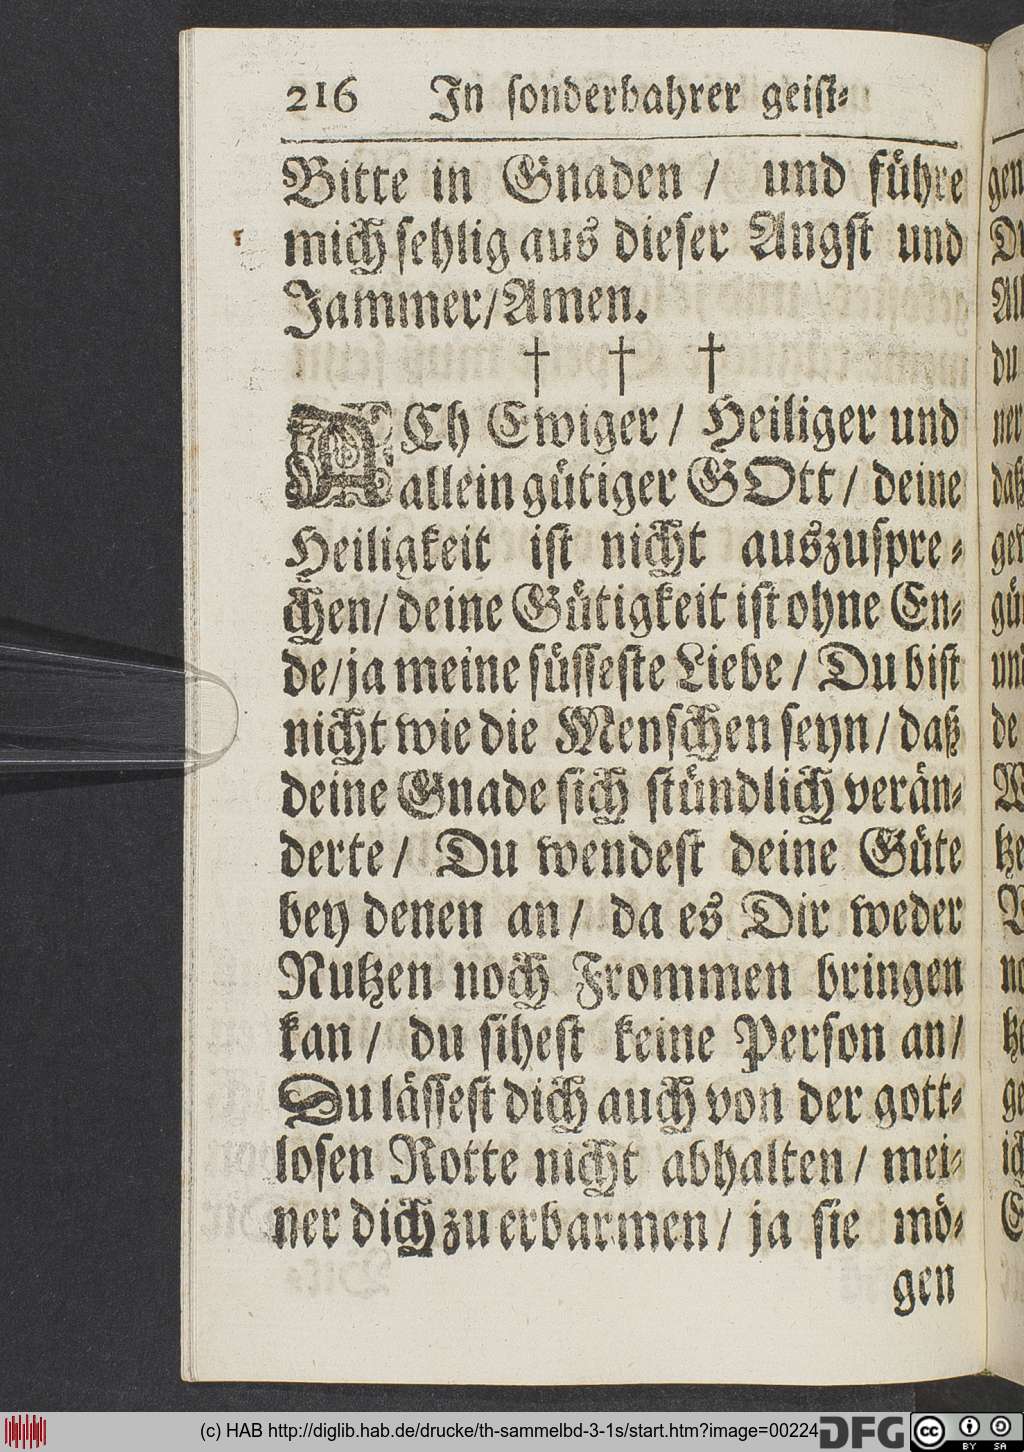 216 In sonderbahrer geist⸗
Bitte in Gnaden / und führe
mich sehlig aus dieser Angst und
Jammer/Amen.
† † †
ACh Ewiger / Heiliger und
allein gütiger GOtt / deine
Heiligkeit ist nicht auszuspre⸗
chen/ deine Gütigkeit ist ohne En⸗
de/ja meine süsseste Liebe / Du bist
nicht wie die Menschen seyn / daß
deine Gnade sich stündlich verän⸗
derte / Du wendest deine Güte
bey denen an / da es Dir weder
Nutzen noch Frommen bringen
kan / du sihest keine Person an/
Du lässest dich auch von der gott⸗
losen Rotte nicht abhalten / mei⸗
ner dich zu erbarmen / ja sie mö⸗
gen
(c) HAB http://diglib.hab.de/drucke/th-sammelbd-3-1s/start.htm?image=00224
DFG
cc BY SA